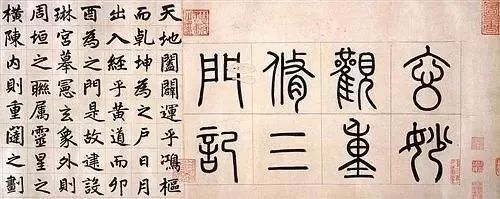 玄妙
觀重
脩三
門記
天地闔闢運乎鴻樞
而乾坤為之戶日月
出入經乎黃道而卯
酉為之門是故建設
琳宮摹憲玄象外則
周垣之聯属靈星之
横陳内則重闥之劃